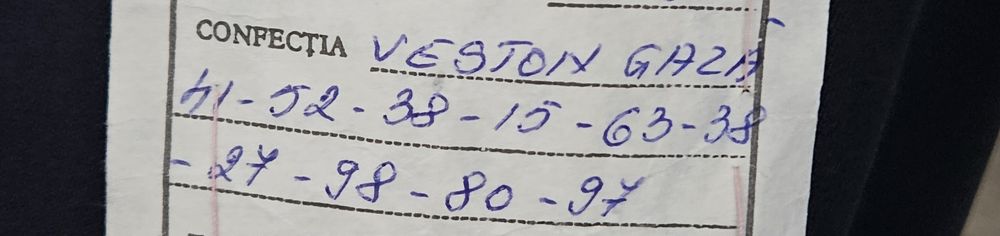 CONFECȚIA VESTON GAZĂ
41-52-38-15-63-38
-27-98-80-97